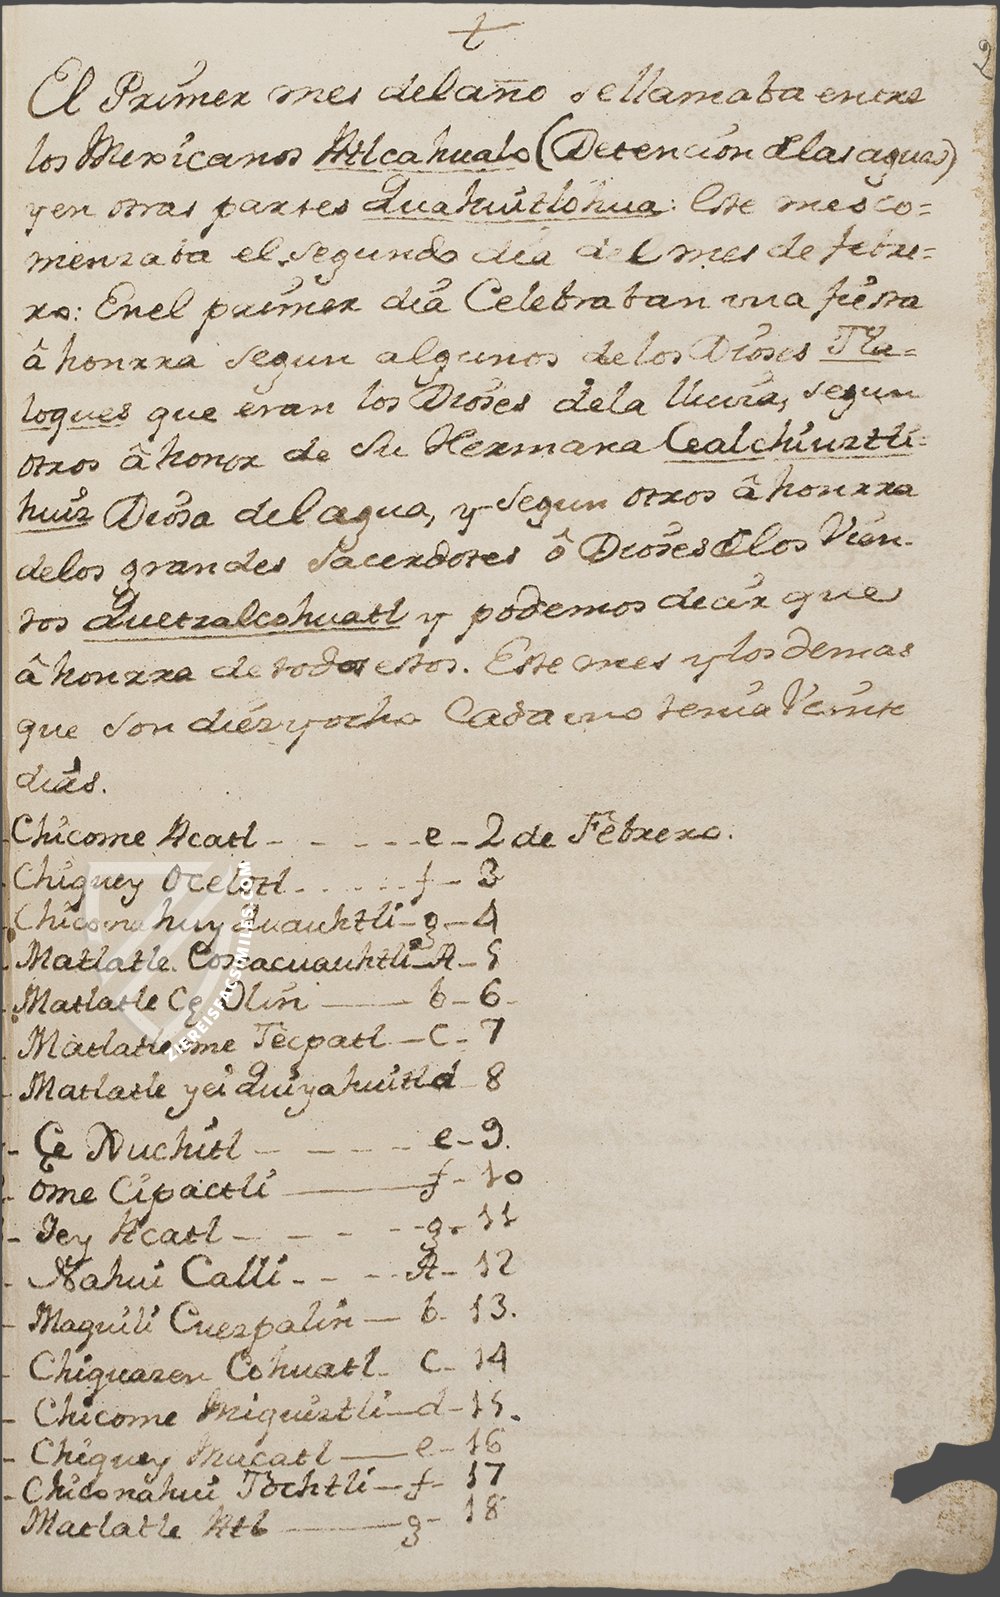 2
El Primer mes del año sellamaba entre
los Mexicanos Atlcahualo (Detencion dlas aguas)
y en otras partes Quahuitlohua: Este mes co=
menzaba el segundo dia del mes de febre=
ro: En el primer dia Celebraban una fiesta
â honrra segun algunos de los Dioses Tla=
loques que eran los Dioses dela lluvia, segun
otros â honor de su Hermana Cealchiuztli=
huiz Diosa del agua, y segun otros â honrra
delos grandes Sacerdotes ô Dioses dlos Vien-
tos Quetzalcohuatl y podemos decir que
â honrra de todos estos. Este mes y los demas
que son diez y ocho Cada uno tenia Veinte
dias.
- Chicome Acatl - - - - - e - 2 de Febrero.
- Chiguey Ocelotl - - - - - f - 3
- Chiconahuy Quauhtli - g - 4
- Matlatle Coscacuauhtli - A - 5
- Matlatle Çe Olin — b - 6 -
- Matlatle ome Tecpatl - C - 7
- Matlatle yei Quiyahuitl d 8
- Çe Xuchitl - - - - - e - 9.
- ome Cipactli — f - 10
- Yey Acatl - - - - - g - 11
- Nahui Calli - - - - A - 12
- Maguili Cuezpalin — b - 13.
- Chiguazen Cohuatl - C - 14
- Chicome Miquiztli — d - 15.
- Chiguey Macatl — e - 16
- Chiconahui Tochtli — f - 17
- Matlatle Atl — g - 18
ZIEREISFACSIMILES.COM